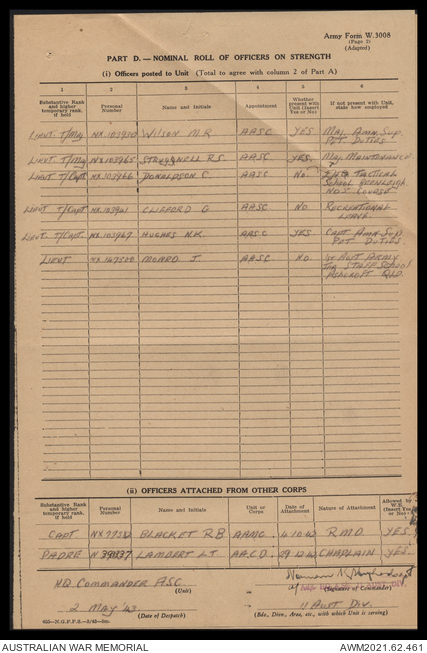 Army Form W.3008
(Page 2)
(Adapted)
PART D. — NOMINAL ROLL OF OFFICERS ON STRENGTH
(i) Officers posted to Unit (Total to agree with column 2 of Part A)
1 2 3 4 5 6
Substantive Rank and higher temporary rank, if held
Personal Number
Name and Initials
Appointment
Whether present with Unit (Insert Yes or No)
If not present with Unit, state how employed
LIEUT. T/Maj NX.103910 WILSON M.R. AASC YES MAJ. AMN. SUP.
PET. DUTIES
LIEUT. T/Maj NX.103965 R.S. AASC YES. MAJ. MAINTENANCE
LIEUT. T/Capt NX.103966 DONALDSON C. AASC No. TACTICAL
SCHOOL BEENLEIGH
NO5 COURSE
LIEUT T/Capt NX.103961 CLIFFORD G AASC NO RECREATIONAL
LEAVE.
LIEUT. T/CAPT. NX.103967 HUGHES N.K. AASC YES CAPT AMN. SUP
PET DUTIES.
LIEUT J. AASC NO. 1st AUST ARMY
STAFF SCHOOL
ASHCROFT QLD.
(ii) OFFICERS ATTACHED FROM OTHER CORPS
Substantive Rank and higher temporary rank, if held
Personal Number
Name and Initials
Unit or Corps
Date of Attachment
Nature of Attachment
Allowed by W.E. (Insert Yes or No)
CAPT BLACKET R B AAMC. R.M.O. YES.
PADRE LAMBERT L.T AA.C.D. CHAPLAIN YES.
HQ COMMANDER ASC.
(Unit)
(Signature of Commander)
2 MAY '43
(Date of Despatch)
11 AUST DIV.
(Bde., Divn., Area, etc., with which Unit is serving)
AUSTRALIAN WAR MEMORIAL
AWM2021.62.461